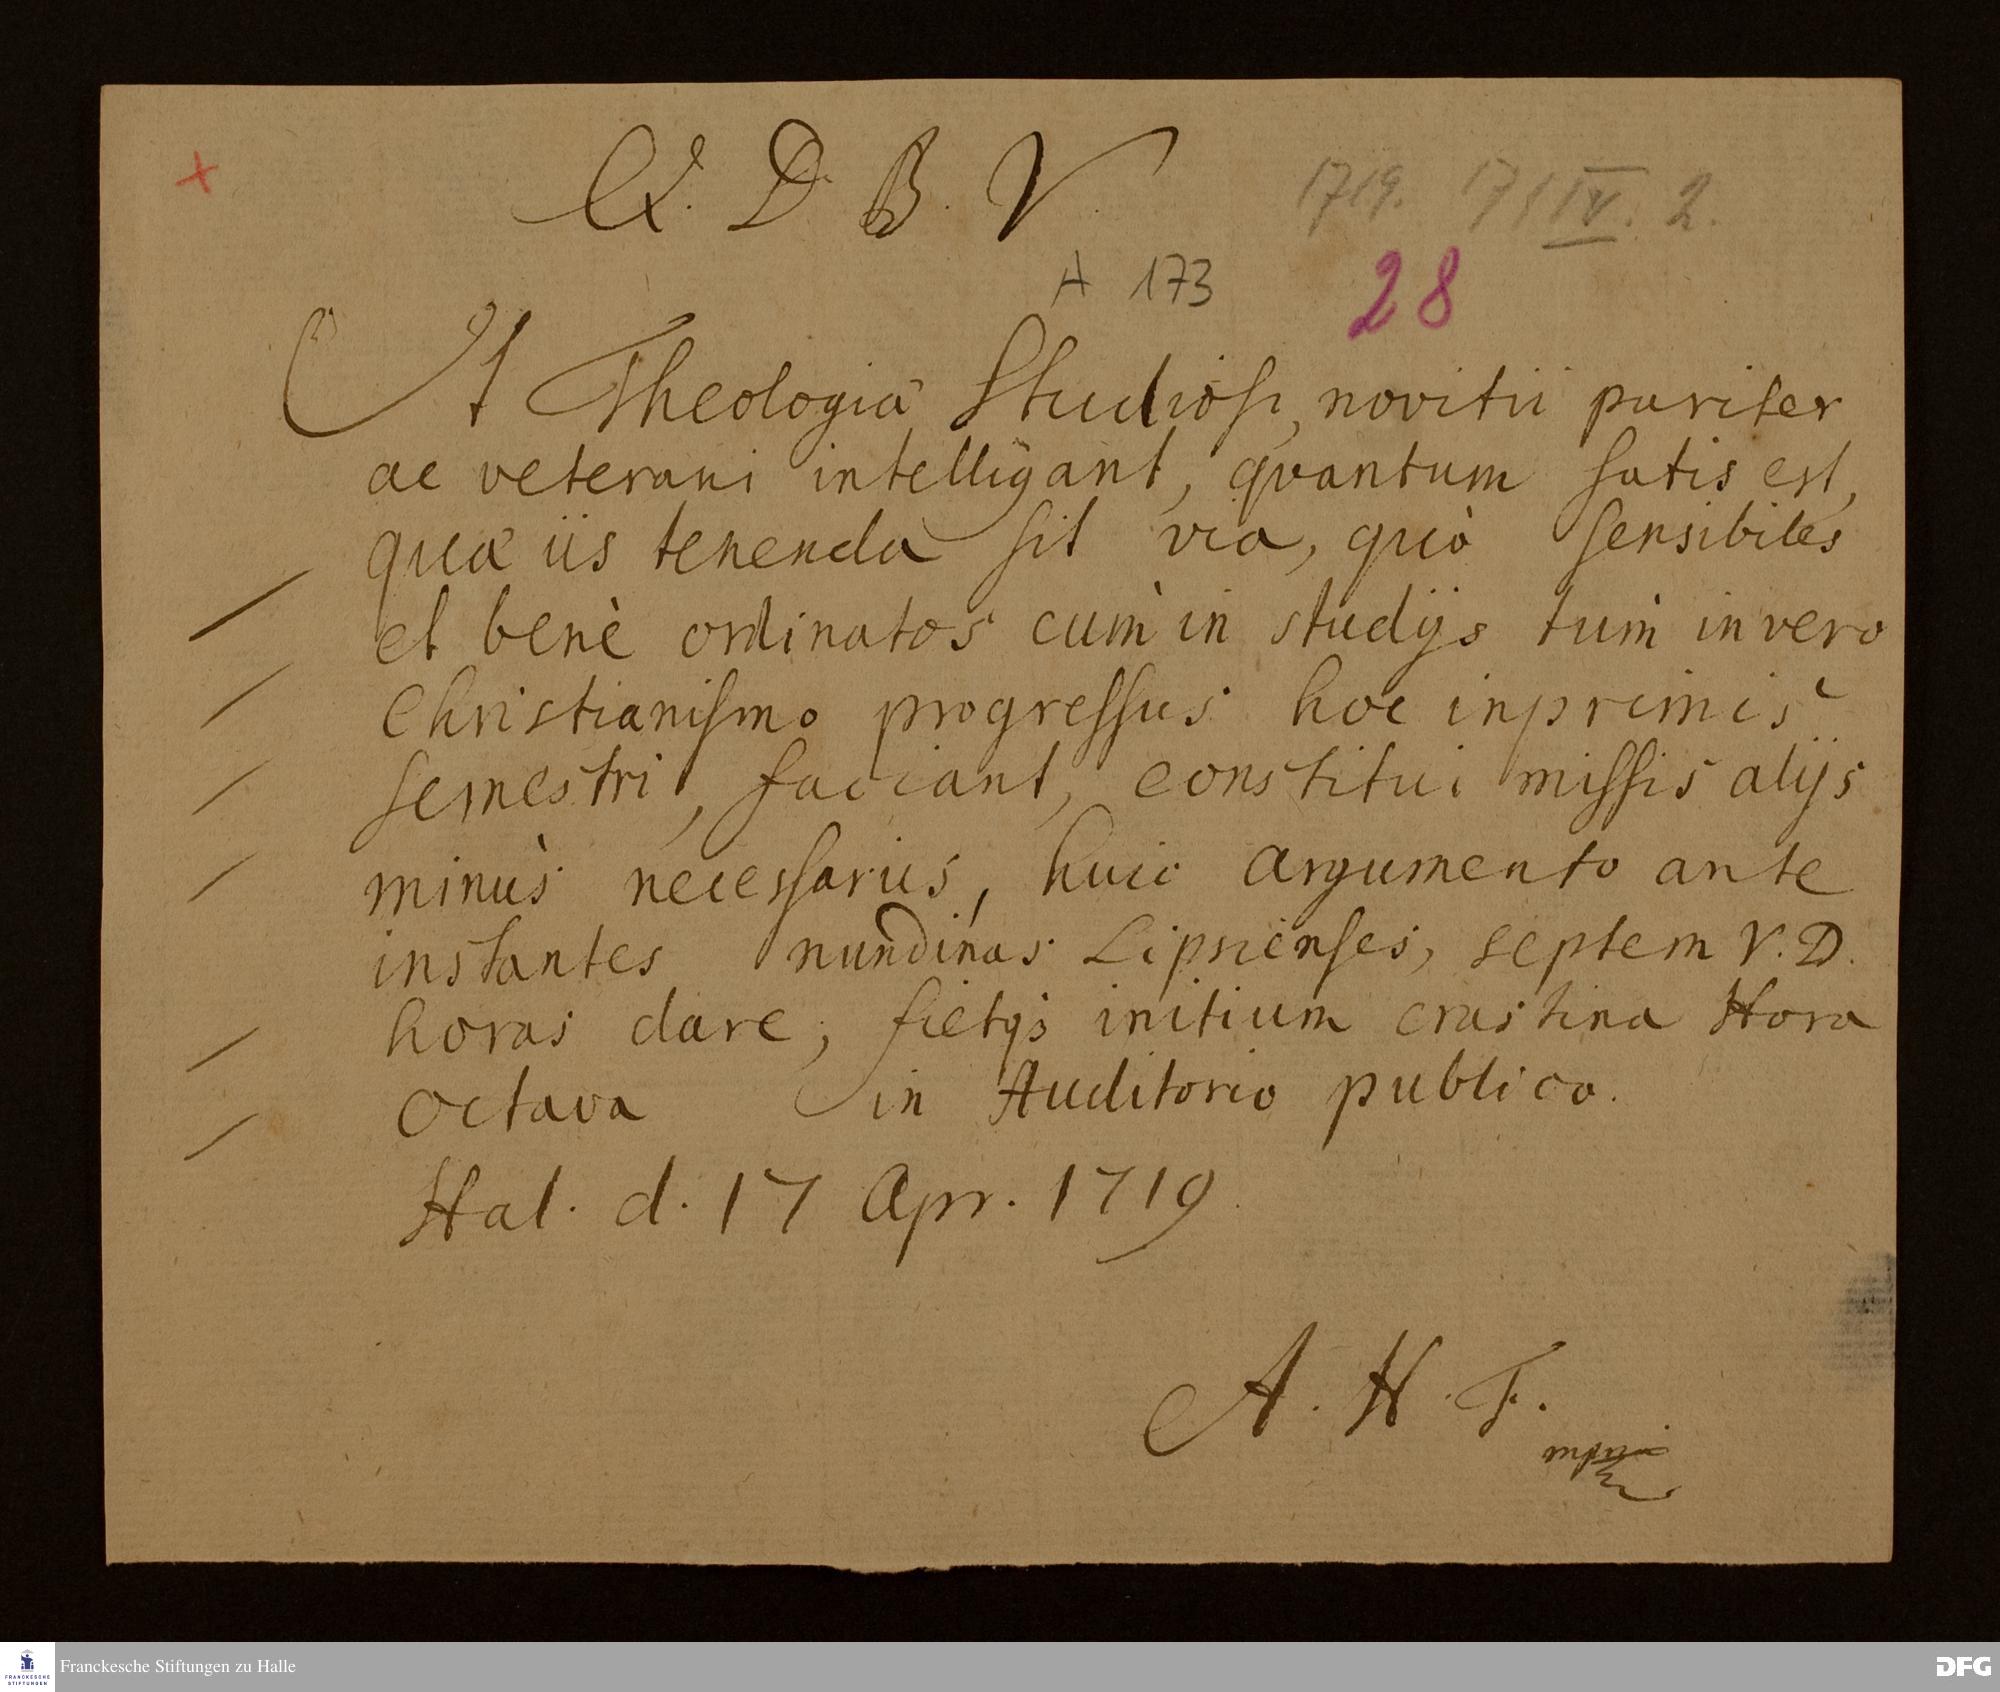 Q. D. B. V.
1719. 17/IV. 2.
A 173
28
Ut Theologiæ Studiosi, novitii pariter
ac veterani intelligant, qvantum satis est,
quæ iis tenenda sit via, quò sensibiles
et benè ordinatos cùm in studijs tùm in vero
Christianismo progressus hoc inprimis
semestri, faciant, constitui missis alijs
minùs necessariis, huic argumento ante
instantes nundinas Lipsienses, septem V. D.
horas dare; fietq́s initium crastina Hora
octava in Auditorio publico.
Hal. d. 17 Apr. 1719.
A. H. F.
mpria
Franckesche Stiftungen zu Halle
FRANCKESCHE
STIFTUNGEN
DFG